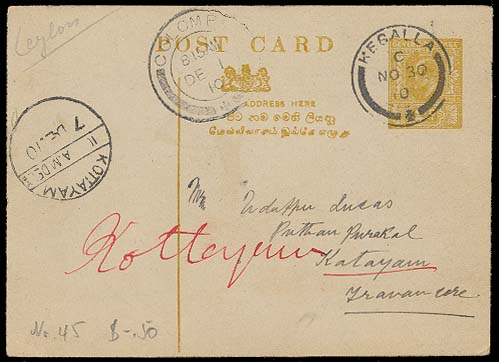 Ceylon
POST CARD
COLOMBO
DE 1
10
KEGALLA
C
NO 30
10
CEYLON POSTAGE
ADDRESS HERE
7 DE. 10
11 A.M.
KOTTAYAM
Mr Udappu Lucas
Puthan Purakal
Kottayam
Katayam
Travancore
No. 45 $-.50